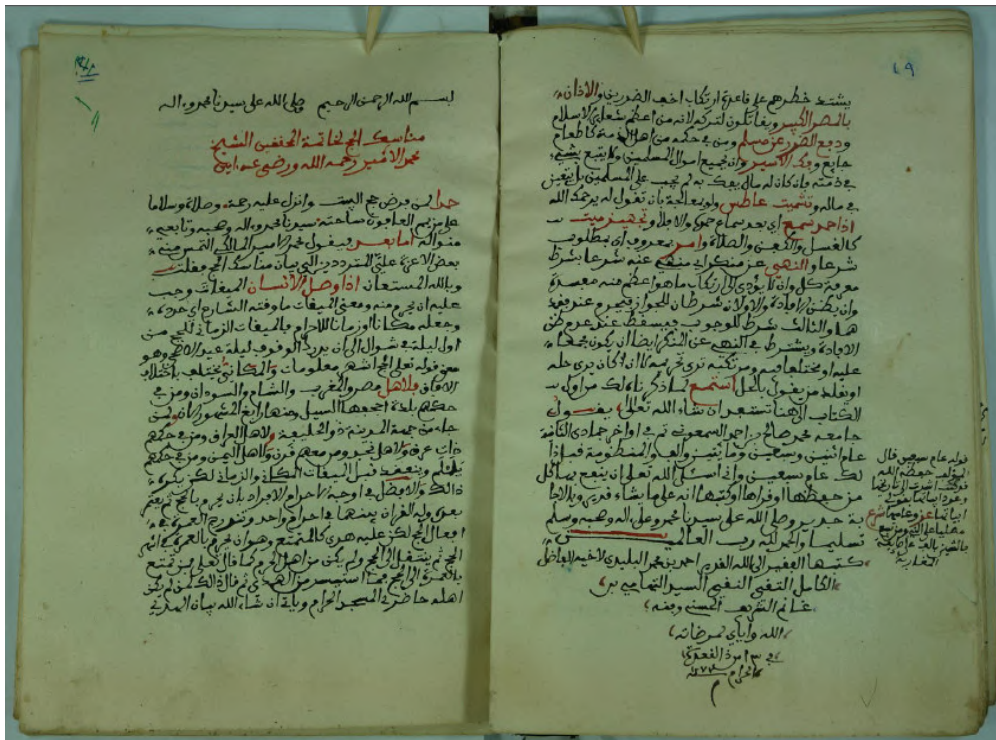 ٤٩
يشتد خطرهم على قاعدة ارتكاب اخف الضررين والاذان
بالمصر الكبير ويقاتلون لتركه لانه من اعظم شعائر الاسلام
ودفع الضرر عن مسلم ومن في حكمه من اهل الذمة كاطعام
جايع وفك الاسير وان بجميع اموال المسلمين ولا يتبع بشيء
في ذمته فان كان له مال يفك به لم يجب على المسلمين بل يتعين
في ماله وتشميت عاطس ولو بمعالجة بان تقول له يرحمك الله
اذا حمد سمع اي بعد سماع حمده والا فلا وتجهيز ميت
كالغسل والكفن والصلاة وامر بمعروف اي بمطلوب
شرعا والنهي عن منكر اي منهي عنه شرعا بشرط
معرفة كل وان لا يؤدي الى ارتكاب ما هو اعظم منه مفسدة
وان يظن الافادة والاولان شرطان للجواز فيحرم عند فقد
هما والثالث شرط للوجوب فيسقط عند عدم ظن
الافادة ويشترط في النهي عن المنكر ايضا ان يكون مجمعا
عليه او مختلفا فيه ومرتكبه يرى تحريمه لا ان كان يرى حله
او يقلد من يقول بالحل استمع لما ذكرناه لك من اول
الكتاب الى هنا تستفد ان شاء الله تعالى يقول
جامعه محمد صالح بن احمد السمعوني تم في اواخر جمادى الثانية
عام اثنين وسبعين ومايتين والف والمنظومة قبل ذا
لك عام سبعين واني اسئل الله تعالى ان ينفع بها كل
من حفظها او قراها او كتبها انه على ما يشاء قدير وبالاجا
بة جدير وصلى الله على سيدنا محمد وعلى اله وصحبه وسلم
تسليما والحمد لله رب العالمين
كتبها الفقير الى الله القدير احمد بن محمد البليدي لاخيه الفاضل
الكامل التقي النقي السيد التهامي بن
غانم الشريف الحسني وفقه
الله واياي لمرضاته
في ١٣ من ذا القعدة
الحرام ١٢٧٣
قوله عام سبعين قال
المؤلف حفظه الله
بسم الله الرحمن الرحيم وصلى الله على سيدنا محمد واله
مناسك الحج لخاتمة المحققين الشيخ
محمد الامير رحمه الله ورضي عنه امين
حمدا لمن فرض حج البيت وانزل عليه رحمة وصلاة وسلاما
على مزيد العابدين ساحته سيدنا محمد واله وصحبه وتابعيه
منواله اما بعد فيقول محمد الامير المالكي التمس مني
بعض الاعزة علي المترددين الي بيان مناسك الحج فقلت
وبالله المستعان اذا وصل الانسان الميقات وجب
عليه ان يحرم منه ومعنى الميقات ما وقته الشارع اي حدده
وجعله مكانا او زمانا للاحرام فالميقات الزماني للحج من
اول ليلة في شوال الى ان يدرك الوقوف ليلة عيد الاضحى وهو
معنى قوله تعالى الحج اشهر معلومات والمكاني يختلف باختلاف
الافاق فلاهل مصر والمغرب والشام والسودان ومن في
حكمهم بلدة اجحفها السيل ومنها رابغ المشهور الان ولمن
جاء من جهة المدينة ذو الحليفة ولاهل العراق ومن في حكمهم
ذات عرق ولاهل نجد ومن معهم قرن ولاهل اليمن ومن في حكمهم
يلملم وينعقد قبل الميقات المكاني والزماني لكن يكره
ذالك والافضل في اوجه الاحرام الافراد بان يحرم بالحج ثم يعتمر
بعده وله القران بينهما في احرام واحد وتندرج العمرة في
افعال الحج لكن عليه هدي كالمتمتع وهو ان يحرم بالعمرة في اشهر
الحج ثم ينتقل الى الحج ولم يكن من اهل الحرم كما قال تعالى فمن تمتع
بالعمرة الى الحج فما استيسر من الهدي ثم قال ذالك لمن لم يكن
اهله حاضري المسجد الحرام ويأتي ان شاء الله بيان الهدي